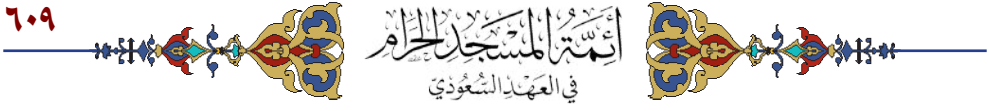 ٦٠٩
أَئِمَّةُ المَسْجِدِ الحَرَامِ
في العَهْدِ السُّعُودِيّ